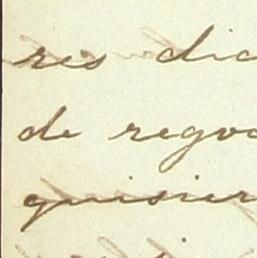 res dic
de regoc
quisier